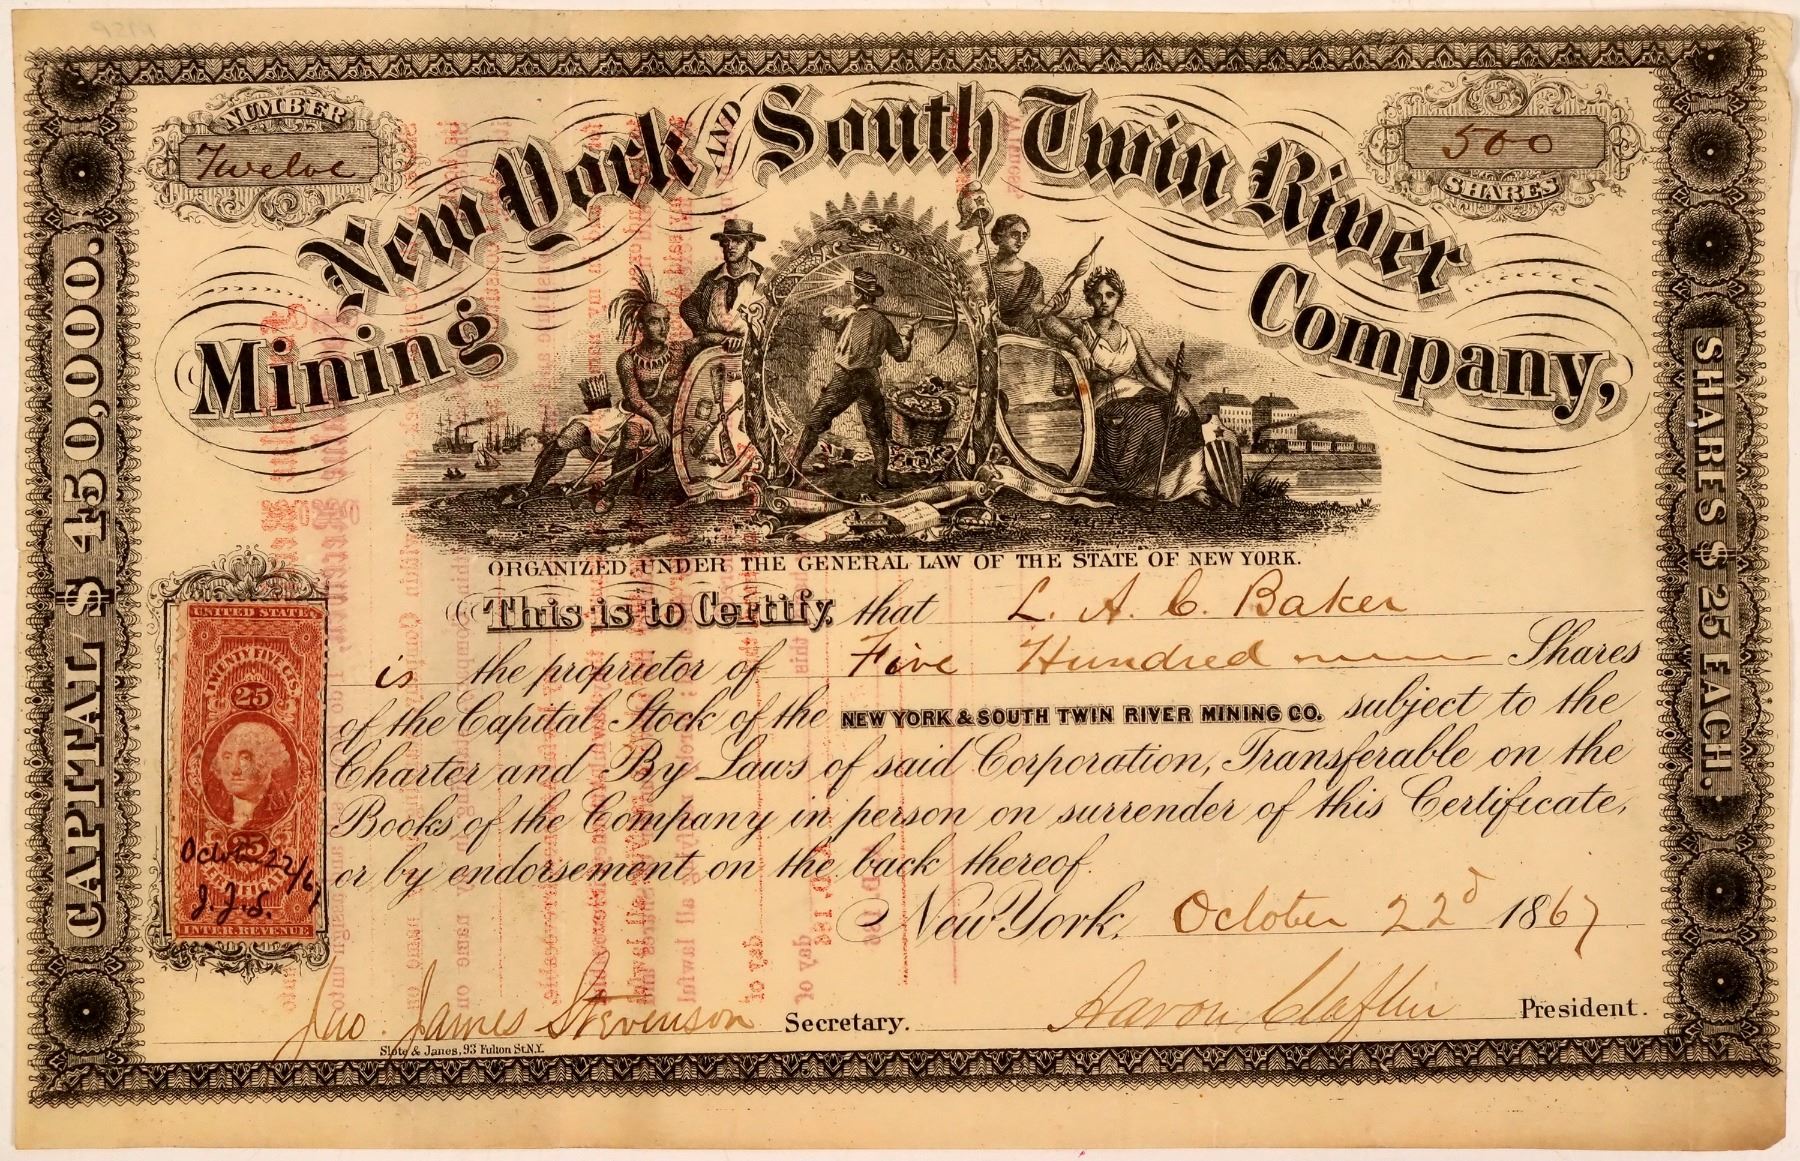 NUMBER
Twelve
500
SHARES
New York AND South Twin River
Mining Company,
CAPITAL $ 450,000.
SHARES $ 25 EACH.
ORGANIZED UNDER THE GENERAL LAW OF THE STATE OF NEW YORK.
This is to Certify, that L. A. C. Baker
is the proprietor of Five Hundred Shares
of the Capital Stock of the NEW YORK & SOUTH TWIN RIVER MINING CO. subject to the
Charter and By Laws of said Corporation, Transferable on the
Books of the Company in person on surrender of this Certificate,
or by endorsement on the back thereof.
New York, October 22d 1867
Jno. James Stevenson Secretary. Aaron Claflin President.
Slote & Janes, 93 Fulton St. N.Y.
UNITED STATES
TWENTY FIVE CTS.
25
25
CERTIFICATE
INTER. REVENUE
October 22/67
J. J. S.